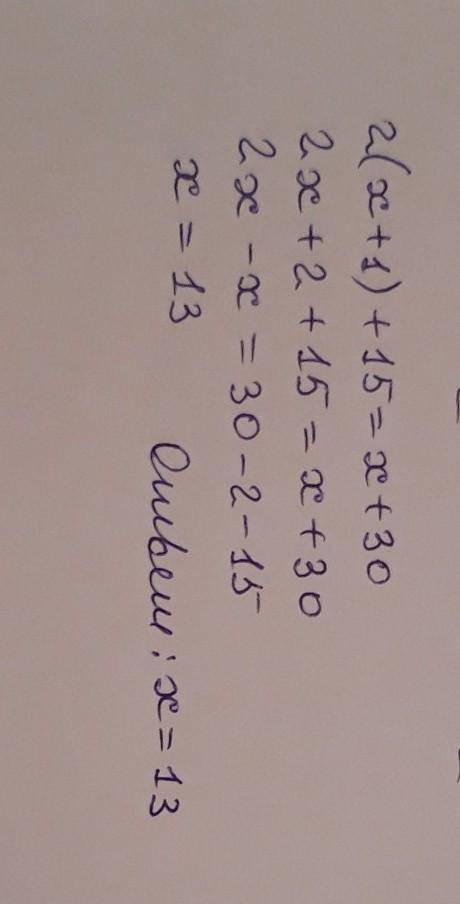 2(x+1)+15=x+30
2x+2+15=x+30
2x-x=30-2-15
x=13 Ответ: x=13